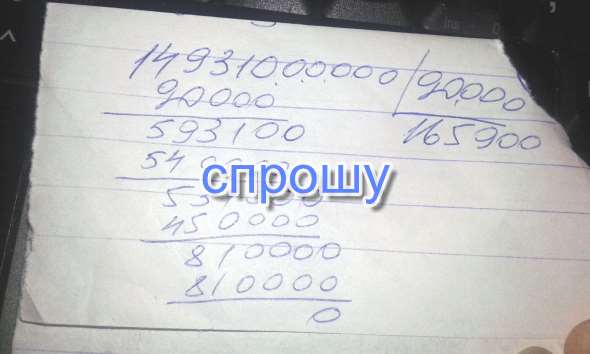 14931000000 90000
90000 165900
593100
спрошу
450000
810000
810000
0